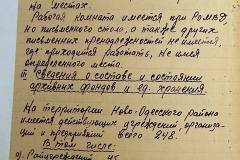 на местах.
Рабочая комната имеется при РОМВД,
но письменного стола, а также других
письменных принадлежностей не имеется,
где приходится работать, не имея
определенного места.
III Сведения о составе и состоянии
архивных фондов и ед. хранения.
На территории Ново-Одесского района
имеется действующих учреждений, организа-
ций и предприятий всего 248.
В том числе:
а)